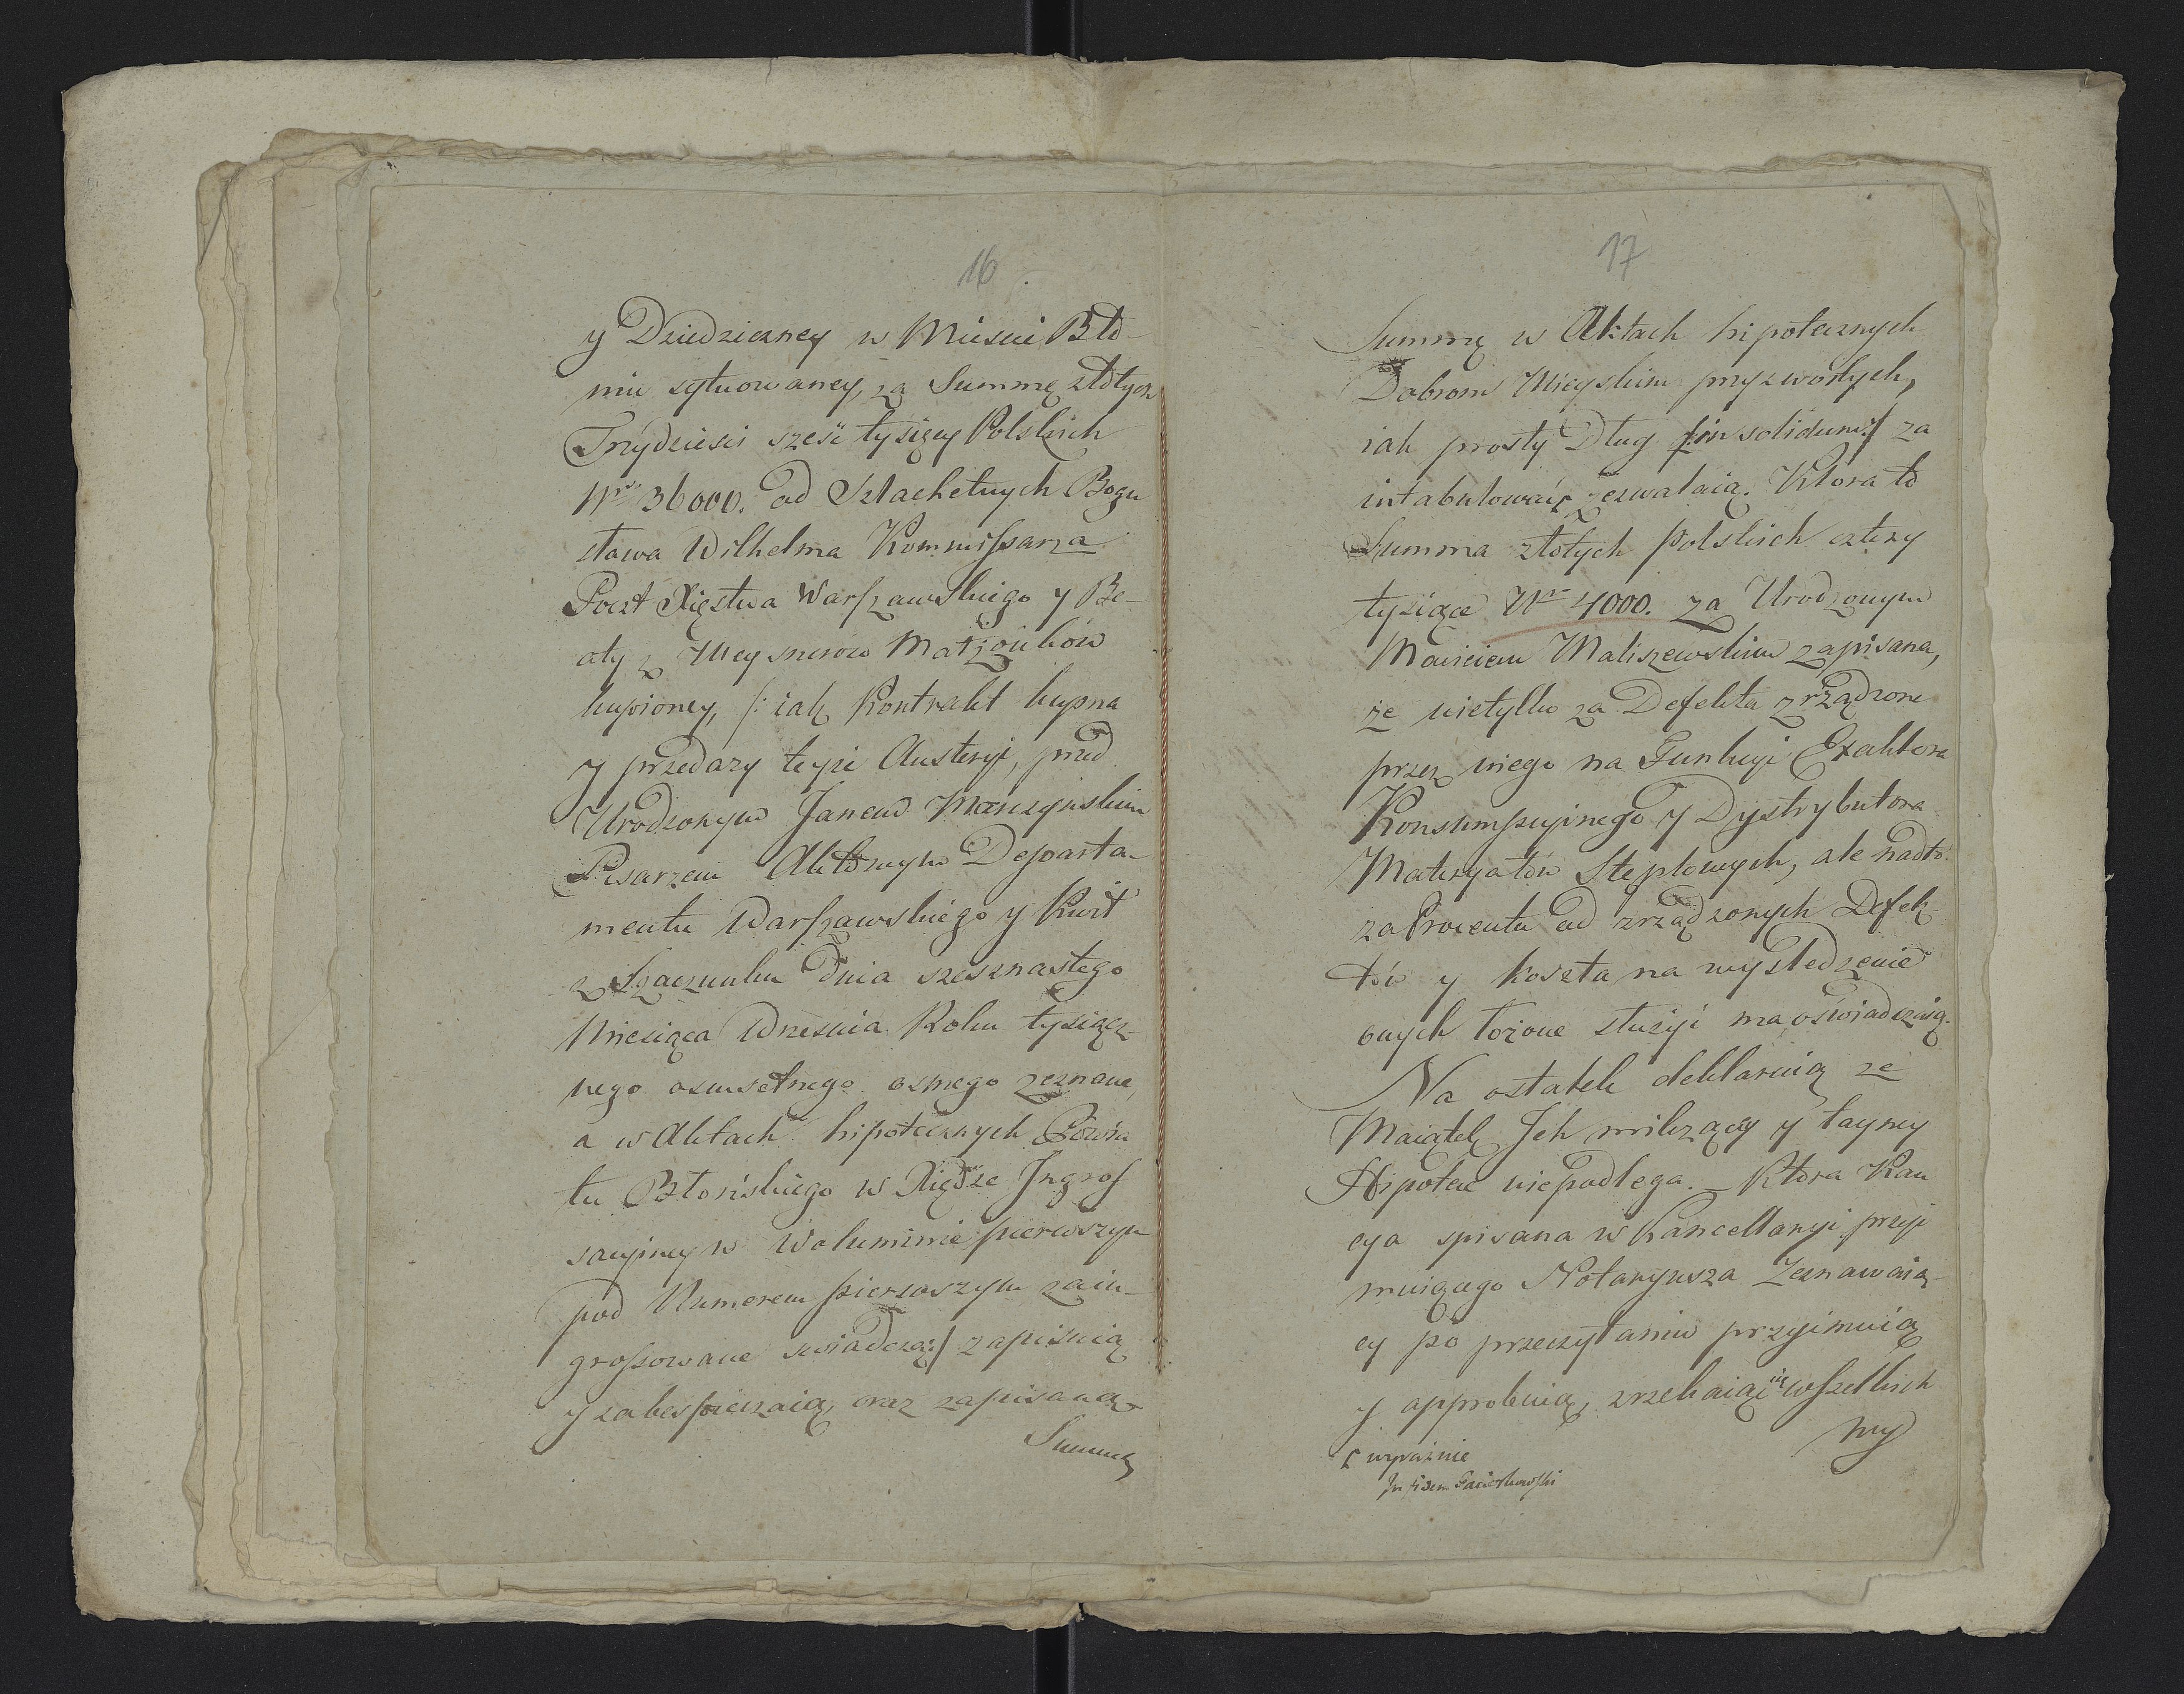 16
y Dziedziczney w Miescie Bło-
niu sytuowaney, za Summę złotych
Trzydziesci sześć tysięcy Polskich
Nro 36000. od Szlachetnych Bogu
sława Wilhelma Kommissarza
Poczt Xięstwa Warszawskiego y Be-
aty z Meysnerow Małżonków
kupioney, /: iak Kontrakt kupna
y przedazy teyże Austeryi, przed
Urodzonym Janem Marczyńskim
Pisarzem Aktowym Departa-
mentu Warszawskiego y Kwit
z Szacunku Dnia szesznastego
Miesiąca Wrzesnia Roku tysiącz-
nego osmsetnego osmego zeznane,
a w Aktach hipotecznych Powia
tu Błońskiego w Xiędze Ingros
sacyiney w Woluminie pierwszym
pod Numerem pierwszym zain-
grossowane swiadczą :/ zapisuią
y zabespieczaią, oraz zapisaną
Summę
17
Summę w Aktach hipotecznych
Dobrom Mieyskim przyzwoitych,
iak prosty Dług /: in solidum :/ za
intabulować zezwalaią. Ktora to
Summa złotych Polskich cztery
tysiące Nro 4000. za Urodzonym
Maciciem Maliszewskim zapisana,
że nietylko za Defekta zrządzone
przez niego na Funkcyi Exaktora
Konsumpcyinego y Dystrybutora
Materyałów Steplowych, ale nadto
za Procenta od zrządzonych Defek-
tów y koszta na wysledzenie
onych łożone służyć ma oświadczaią.
Na ostatek deklaruią ze
Maiątek Jch milczącey y tayney
Hipotece niepodlega. – Ktora Kau
cya spisana w Kancellaryi przyi
muiącego Notaryusza Zeznawaią-
cy po przeczytaniu przyimuią
y approbuią, zrzekaiąc się wszelkich
wy
⌈ wyraźnie